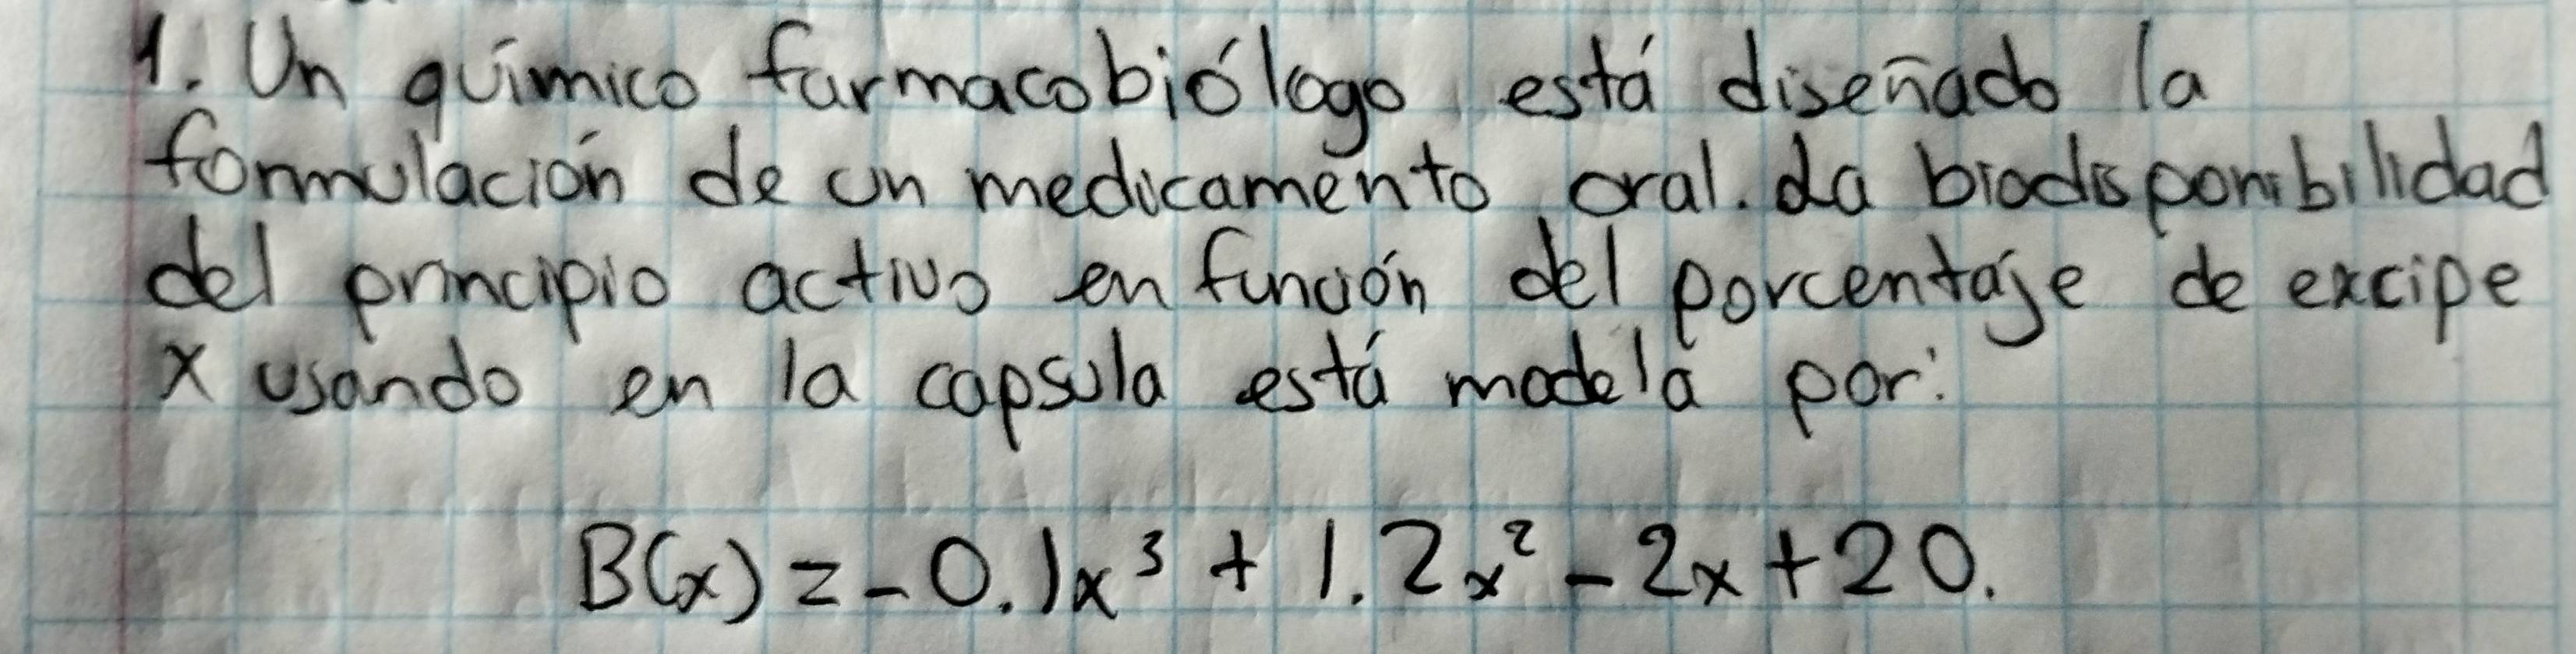 1. Un químico farmacobiólogo está diseñado la
formulación de un medicamento oral. La biodisponibilidad
del principio activo en función del porcentaje de excipe
x usando en la capsula está modela por:
B(x) = -0.1x³ + 1.2x² - 2x + 20.